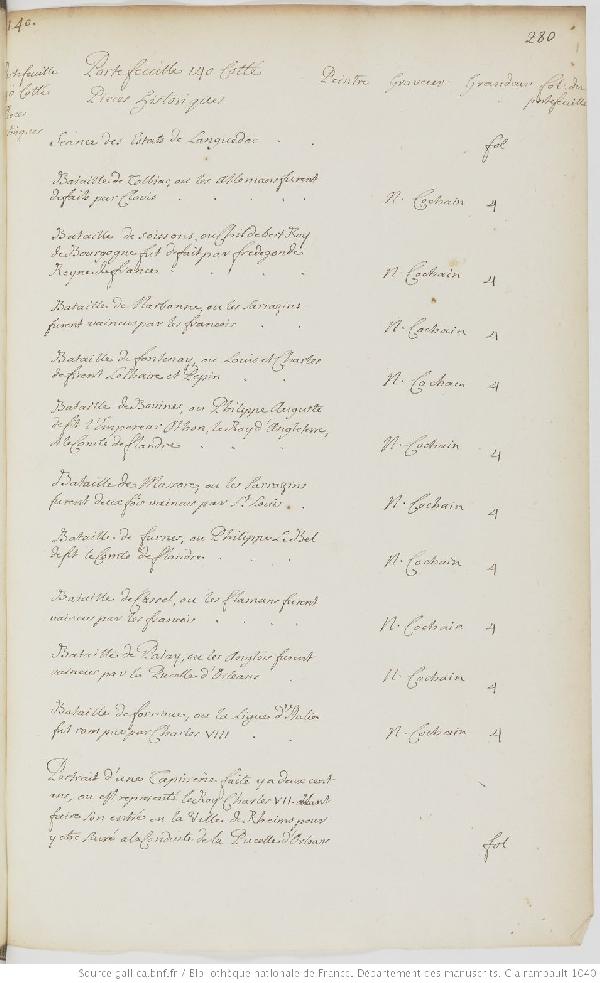 140.
280
Portefeuille 140 Cotté
Pieces historiques
Peintre Graveur Grandeur fol. du
portefeuille
portefeuille
140 Cotté
Pieces
historiques
Seance des Estats de Languedoc . . fol
Bataille de Tolbiac, ou les Allemans furent
defaits par Clovis . . . . . N. Cochain 4
Bataille de Soissons, ou Childebert Roy
de Bourgogne fut defait par fredegonde
Reyne de france . . . . N. Cochain 4
Bataille de Narbonne, ou les Sarrazins
furent vaincus par les francois . . N. Cochain 4
Bataille de fontenay, ou Louis et Charles
defirent Lothaire et Pepin . . N. Cochain 4
Bataille de Bovines, ou Philippe Auguste
defit l'Empereur Othon, le Roy d'Angleterre,
et le Comte de flandre . . . N. Cochain 4
Bataille de Massore, ou les Sarrazins
furent deux fois vaincus par St. Louis . N. Cochain 4
Bataille de furnes, ou Philippe le Bel
defit le Comte de flandre . . . N. Cochain 4
Bataille de Cassel, ou les flamans furent
vaincus par les francois . . . . N. Cochain 4
Bataille de Patay, ou les Anglois furent
vaincus par la Pucelle d'Orleans . N. Cochain 4
Bataille de fornoue, ou la Ligue d'Italie
fut rompue par Charles VIII . . N. Cochain 4
Portrait d'une Tapisserie faite y a deux cent
ans, ou est representé le Roy Charles VII. allant
faire son entrée en la Ville de Rheims pour
y etre Sacré a la Conduite de la Pucelle d'Orleans fol
Source gallica.bnf.fr / Bibliothèque nationale de France. Département des manuscrits. Clairambault 1040